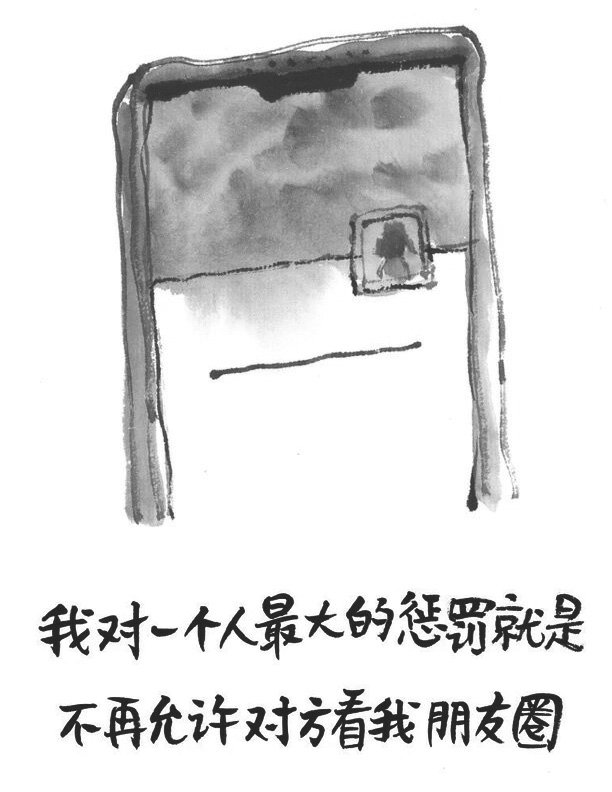 我对一个人最大的惩罚就是
不再允许对方看我朋友圈